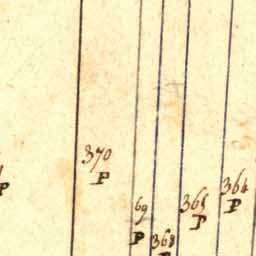 370
P
69
P
368
P
365
P
364
P
P